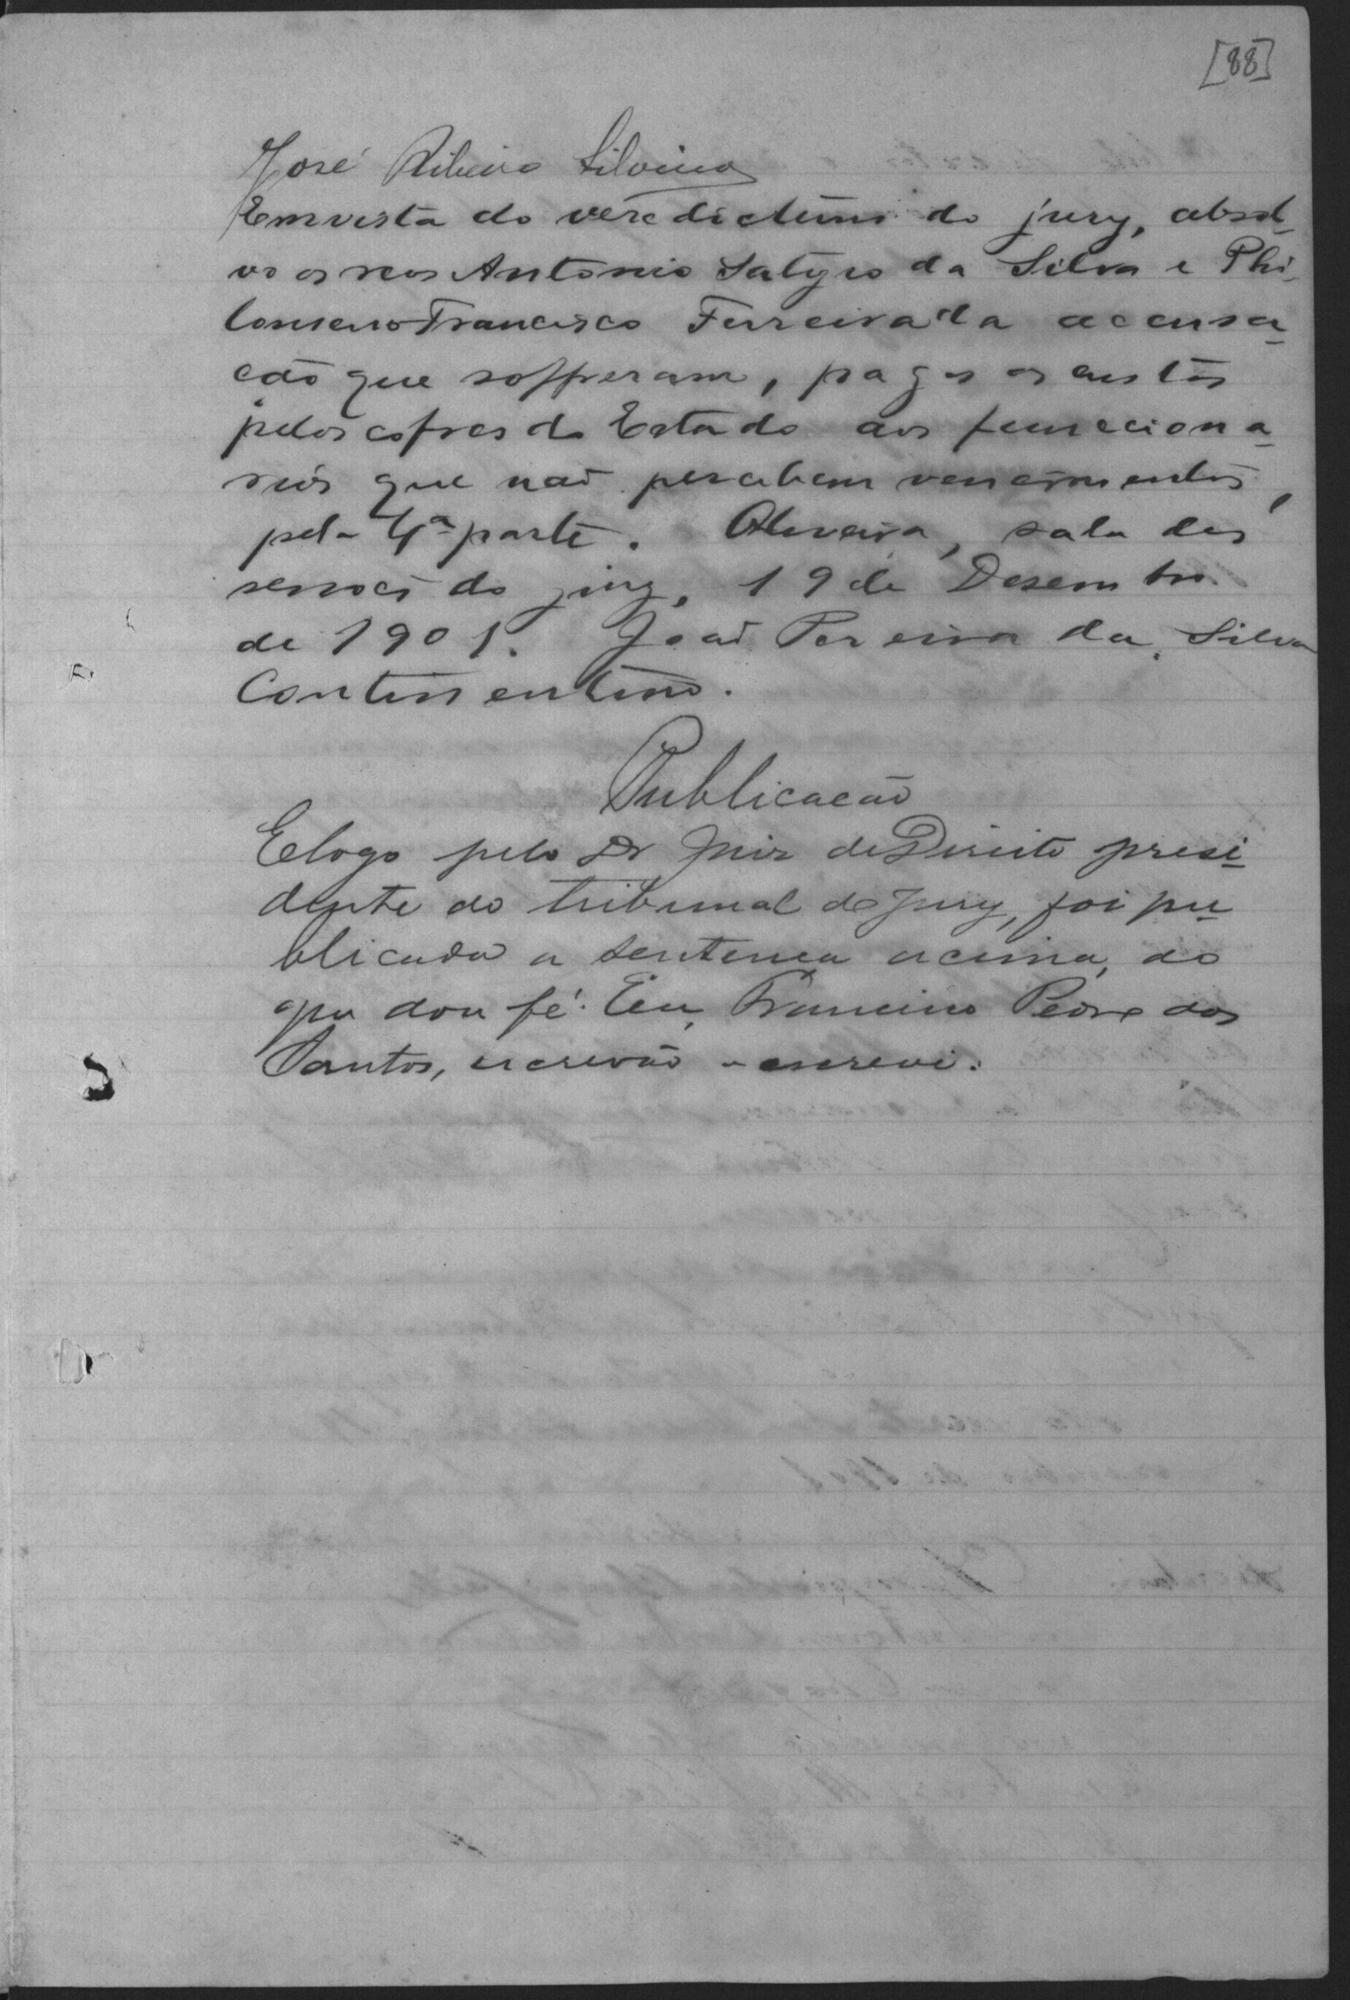 [88]
José Ribeiro Silvino
Em vista do veredictum do jury, absol-
vo os reos Antonio Satyro da Silva e Phi-
lomeno Francisco Ferreira da accusa-
cão que soffreram, pagas as custas
pelos cofres do Estado aos funcciona-
rios que não percebem vencimentos,
pela 4ª parte. sala das
sessões do jury, 19 de Desembro
de 1901. João Pereira da Silva
Continentino.
Publicacão
E logo pelo Dr Juiz de Direito presi-
dente do tribunal do Jury, foi pu-
blicada a sentenca acima, do
que dou fé. Eu, Francisco Pedro dos
Santos, escrivão o escrevi.